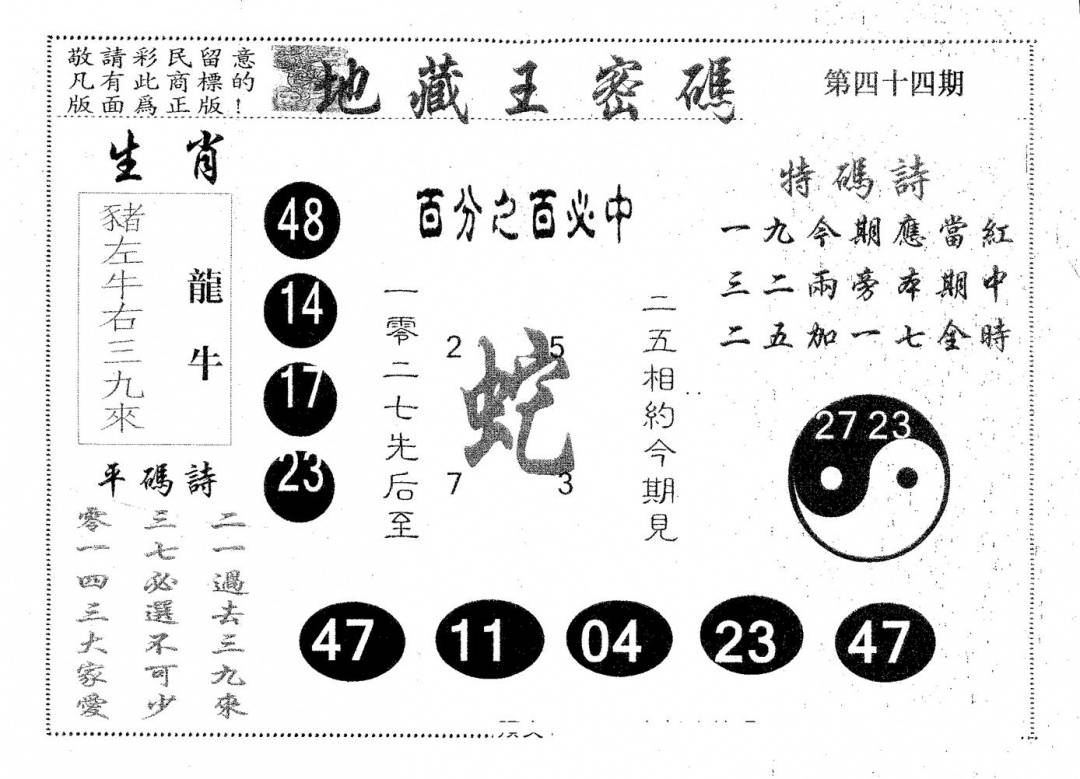 敬請彩民留意
凡有此商標的
版面爲正版！
地藏王密碼
第四十四期
生肖
豬左牛右三九來
龍牛
48
14
17
23
百分之百必中
一零二七先后至
2
5
蛇
7
3
二五相約今期見
特碼詩
一九今期應當紅
三二兩旁本期中
二五加一七全時
27 23
平碼詩
二一過去三九來
三七必選不可少
零一四三大家愛
47
11
04
23
47